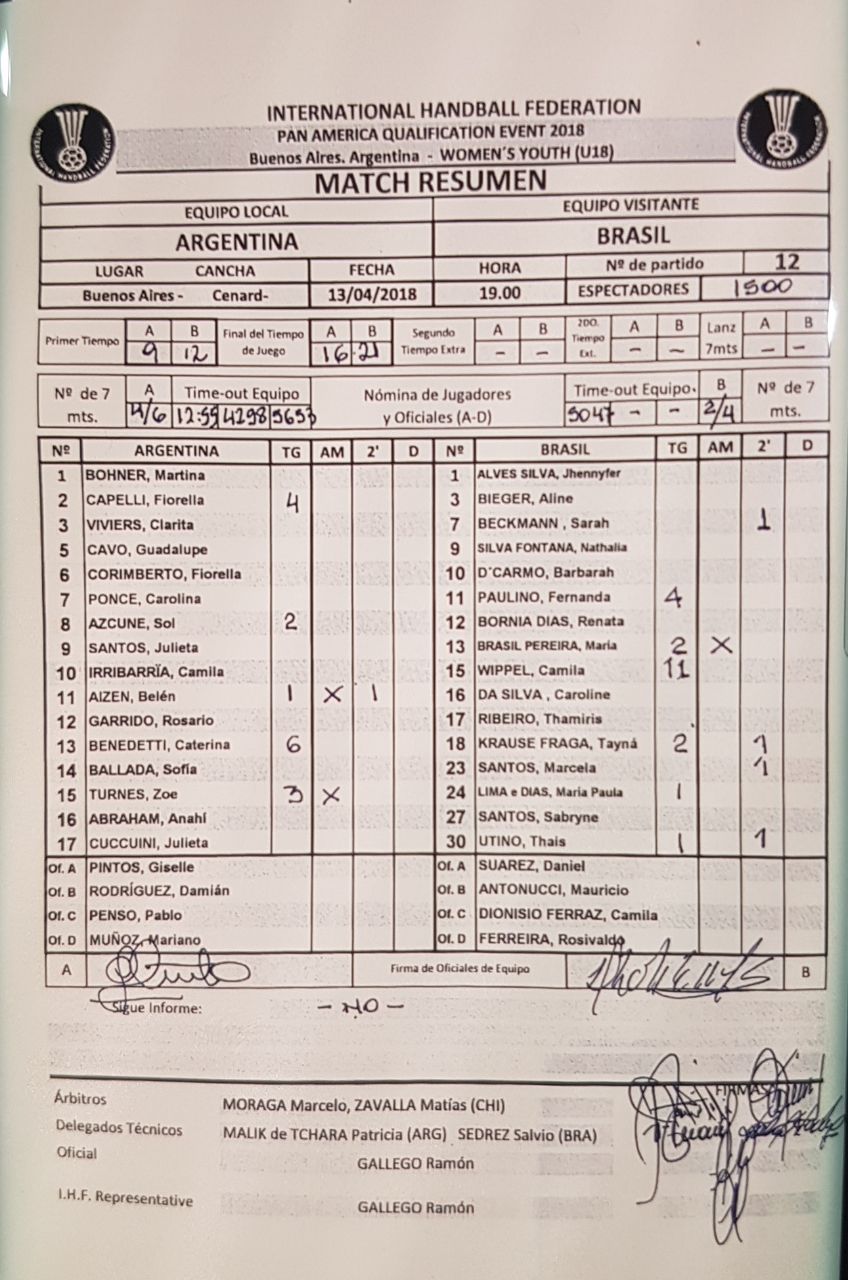 INTERNATIONAL HANDBALL FEDERATION
PAN AMERICA QUALIFICATION EVENT 2018
Buenos Aires. Argentina - WOMEN'S YOUTH (U18)
INTERNATIONAL HANDBALL FEDERATION
INTERNATIONAL HANDBALL FEDERATION
MATCH RESUMEN
EQUIPO LOCAL EQUIPO VISITANTE
ARGENTINA BRASIL
LUGAR CANCHA FECHA HORA Nº de partido 12
Buenos Aires - Cenard- 13/04/2018 19.00 ESPECTADORES 1500
Primer Tiempo A B Final del Tiempo de Juego A B Segundo Tiempo Extra A B 2DO. Tiempo Ext. A B Lanz 7mts A B
9 12 16 21 - - - - - -
Nº de 7 mts. A Time-out Equipo Nómina de Jugadores y Oficiales (A-D) Time-out Equipo. B Nº de 7 mts.
4/6 12:59 4298 5653 5047 - - 2/4
Nº ARGENTINA TG AM 2' D Nº BRASIL TG AM 2' D
1 BOHNER, Martina 1 ALVES SILVA, Jhennyfer
2 CAPELLI, Fiorella 4 3 BIEGER, Aline
3 VIVIERS, Clarita 7 BECKMANN , Sarah 1
5 CAVO, Guadalupe 9 SILVA FONTANA, Nathalia
6 CORIMBERTO, Fiorella 10 D'CARMO, Barbarah
7 PONCE, Carolina 11 PAULINO, Fernanda 4
8 AZCUNE, Sol 2 12 BORNIA DIAS, Renata
9 SANTOS, Julieta 13 BRASIL PEREIRA, María 2 X
10 IRRIBARRÏA, Camila 15 WIPPEL, Camila 11
11 AIZEN, Belén 1 X 1 16 DA SILVA , Caroline
12 GARRIDO, Rosario 17 RIBEIRO, Thamiris
13 BENEDETTI, Caterina 6 18 KRAUSE FRAGA, Tayná 2 1
14 BALLADA, Sofía 23 SANTOS, Marcela 1
15 TURNES, Zoe 3 X 24 LIMA e DIAS, Maria Paula 1
16 ABRAHAM, Anahí 27 SANTOS, Sabryne
17 CUCCUINI, Julieta 30 UTINO, Thais 1 1
Of. A PINTOS, Giselle Of. A SUAREZ, Daniel
Of. B RODRÍGUEZ, Damián Of. B ANTONUCCI, Mauricio
Of. C PENSO, Pablo Of. C DIONISIO FERRAZ, Camila
Of. D MUÑOZ, Mariano Of. D FERREIRA, Rosivaldo
A Firma de Oficiales de Equipo B
Sigue Informe: - NO -
FIRMAS
Árbitros MORAGA Marcelo, ZAVALLA Matías (CHI)
Delegados Técnicos MALIK de TCHARA Patricia (ARG) SEDREZ Salvio (BRA)
Oficial GALLEGO Ramón
I.H.F. Representative GALLEGO Ramón